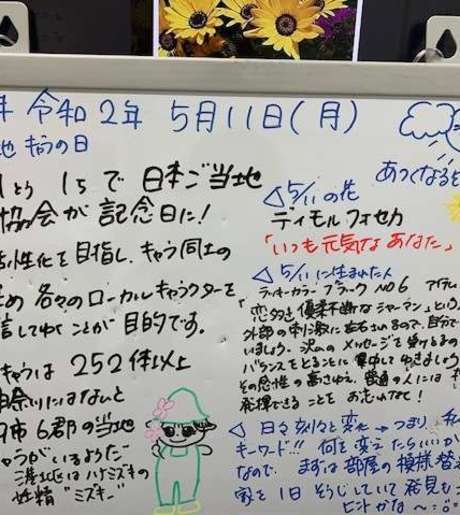 令和2年 5月11日(月)
地 キャラの日
とう 15で 日本ご当地
協会が 記念日に!
活性化を目指し、キャラ同士の
各々のローカルキャラクターを
してゆくことが目的です。
キャラは 252体以上
市6郡の当地
キャラがいるようだ
港北区はハナミズキの
妖精 "ミズキー"
あつくなると
◁ 5/11の花
ディモルフォセカ
「いつも元気なあなた」
◁ 5/11に生まれた人
ラッキーカラー ブラック NO6 アイテム
「恋多き 優柔不断なシャーマン」という
外部の刺激に左右されるので、自分で
いましょう。沢山のメッセージを受けるので
バランスをとることに 集中してゆきましょう
その感性の高さゆえ、普通の人には
発揮できることを お忘れなく!
◁ 日々刻々と変化→つまり 私
キーワード!!! 何を変えたらいいか
なので まずは部屋の模様替
家を1日 そうじしていて 発見も
ヒントかな〜